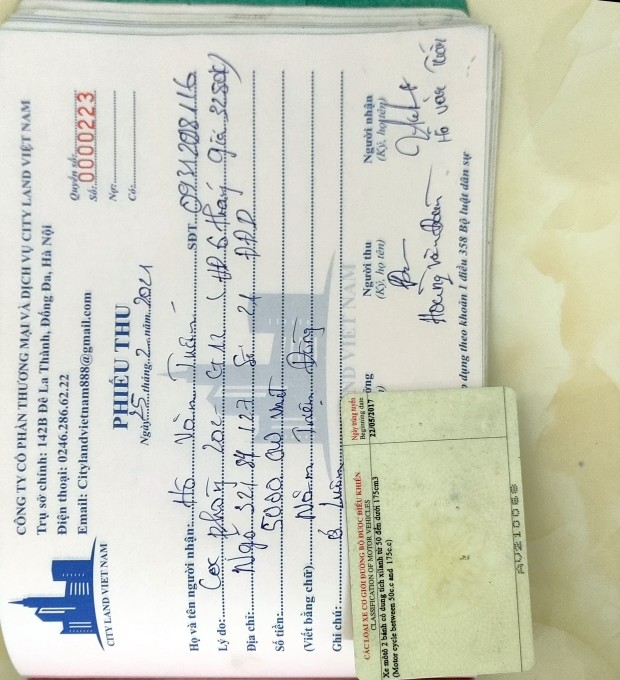 CÔNG TY CỔ PHẦN THƯƠNG MẠI VÀ DỊCH VỤ CITY LAND VIỆT NAM
Trụ sở chính: 142B Đê La Thành, Đống Đa, Hà Nội
Điện thoại: 0246.286.62.22
Email: Citylandvietnam888@gmail.com
CITY LAND VIET NAM
Quyển số:
Số: 0000223
Nợ:
Có:
PHIẾU THU
Ngày 25 tháng 2 năm 2021
Họ và tên người nhận: Hồ Văn SĐT: 0931208116
Lý do: Cọc phòng 202 - CT12 (HĐ 6 tháng giá 3280k)
Địa chỉ: Ngõ 321 Số 24
Số tiền: 5000
(Viết bằng chữ): Năm Triệu Đồng
Ghi chú:
Người thu
(Ký, họ tên)
Người nhận
(Ký, họ tên)
Hoàng Văn
Hồ Văn
dụng theo khoản 1 điều 358 Bộ luật dân sự
D VIET NAM
CÁC LOẠI XE CƠ GIỚI ĐƯỜNG BỘ ĐƯỢC ĐIỀU KHIỂN
CLASSIFICATION OF MOTOR VEHICLES
Ngày trúng tuyển
Beginning date
Xe môtô 2 bánh có dung tích xilanh từ 50 đến dưới 175cm3
(Motor cycle between 50c.c and 175c.c)
22/05/2017
AU210068